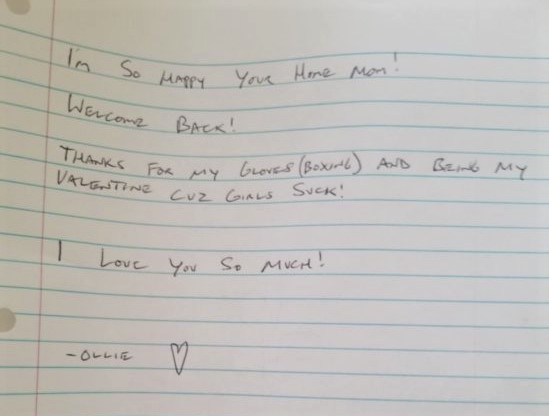 I'm So Happy Your Home Mom!
Welcome Back!
Thanks for my Gloves (Boxing) and Being my
Valentine cuz Girls Suck!
I Love you So much!
-Ollie ♡